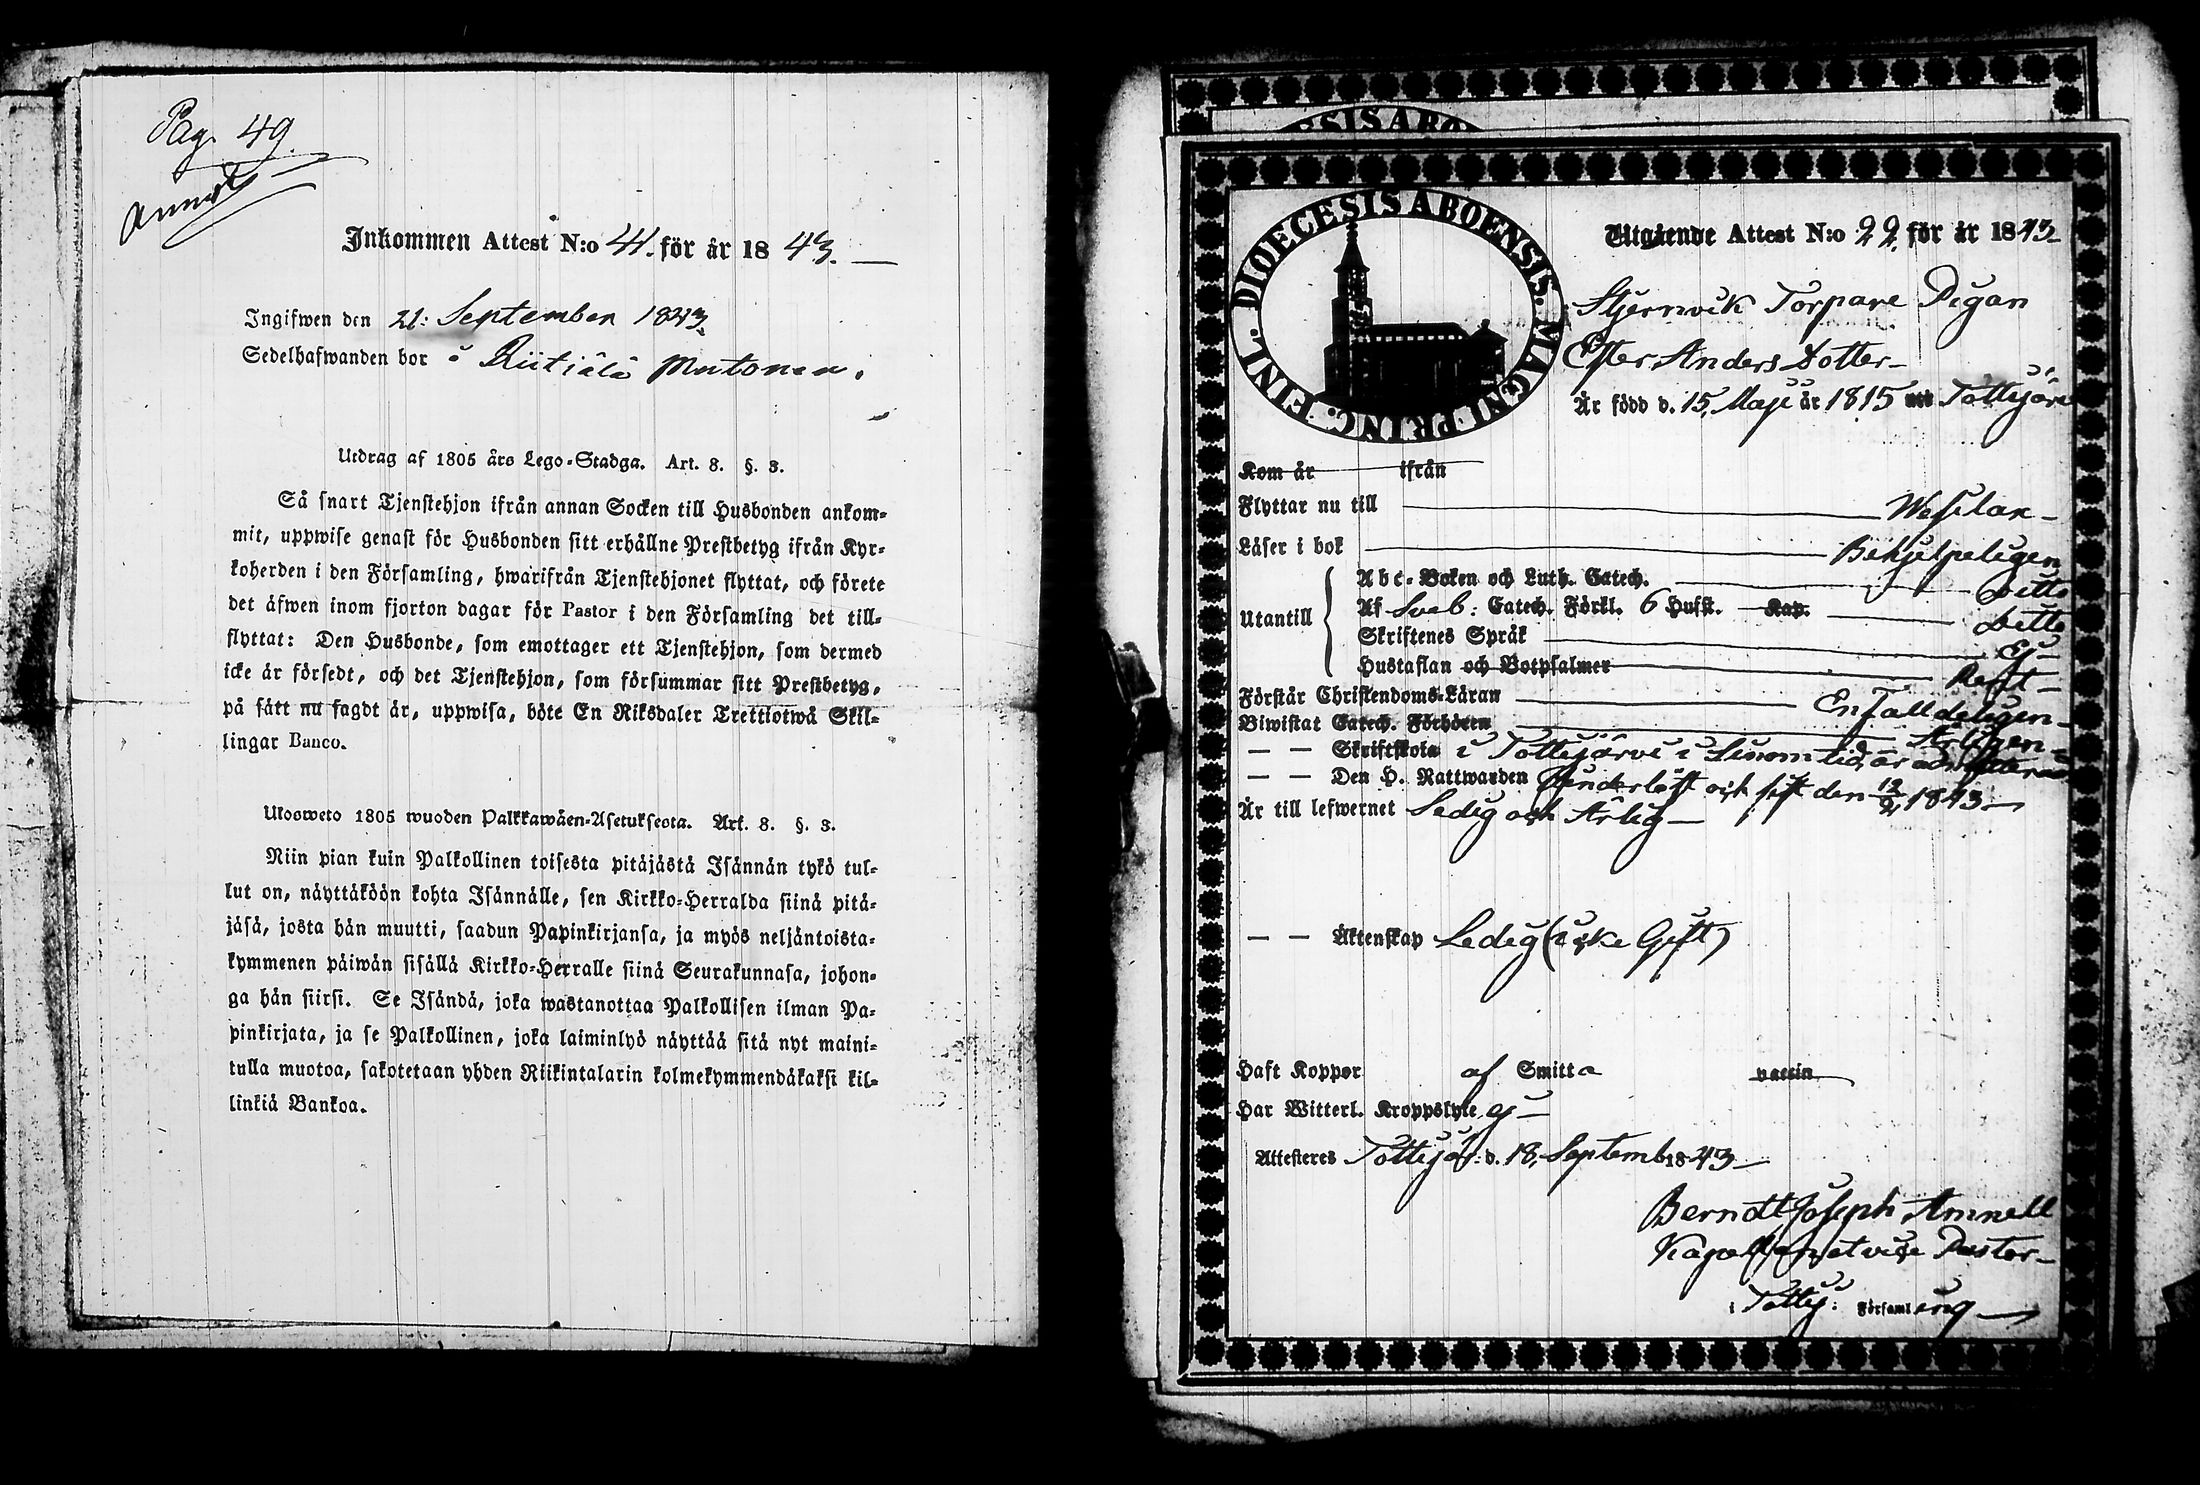 Pag. 49.
Inkommen Attest N:o 44. för år 18 43.
Ingifwen den 21: September 1843.
Sedelhafwanden bor i Riitiälä
Utdrag af 1805 års Lego-Stadga. Art. 8. §. 3.
Så snart Tjenstehjon ifrån annan Socken till Husbonden ankom-
mit, uppwise genast för Husbonden sitt erhållne Prestbetyg ifrån Kyr-
koherden i den Församling, hwarifrån Tjenstehjonet flyttat, och förete
det äfwen inom fjorton dagar för Pastor i den Församling det till-
flyttat: Den Husbonde, som emottager ett Tjenstehjon, som dermed
icke är försedt, och det Tjenstehjon, som försummar sitt Prestbetyg,
på sätt nu sagdt är, uppwisa, böte En Riksdaler Trettiotwå Skil-
lingar Banco.
Ulosweto 1805 wuoden Palkkawäen-Asetuksesta. Art. 8. §. 3.
Niin pian kuin Palkollinen toisesta pitäjästä Isännän tykö tul-
lut on, näyttäköön kohta Isännälle, sen Kirkko-Herralda siinä pitä-
jäsä, josta hän muutti, saadun Papinkirjansa, ja myös neljäntoista-
kymmenen päiwän sisällä Kirkko-Herralle siinä Seurakunnasa, johon-
ga hän siirsi. Se Isändä, joka wastanottaa Palkollisen ilman Pa-
pinkirjata, ja se Palkollinen, joka laiminlyö näyttää sitä nyt maini-
tulla muotoa, sakotetaan yhden Riikintalarin kolmekymmendäkaksi kil-
linkiä Bankoa.
DIOECESIS ABO
DIOECESIS ABOENSIS. MAGNI PRINC. FINL.
Utgående Attest N:o 22. för år 1843
Stjernvik Torpare Pigan
Ester Anders dotter
Är född d. 15. Maji år 1815 uti Tottijärvi
Kom år ifrån
Flyttar nu till Wesilax
Läser i bok Behjelpeligen
Utantill
Abc-Boken och Luth. Catech. Ditto
Af Sveb: Catech. Förkl. 6 Hufst. Kap. Ditto
Skriftenes Språk Ej
Hustaflan och Botpsalmer
Förstår Christendoms-Läran Enfalldeligen
Biwistat Catech. Förhören Årligen
— — Skriftskola i Tottijärvi i Sinom tid, är admitterad
— — Den H. Nattwarden och sist den 12/9 1843
Är till lefwernet Ledig och Ärlig
— — Äktenskap Ledig (icke Gift)
Haft Koppor af Smitta vaccin
Har Witterl. Kroppslyte ej
Attesteres Tottijär: d. 18. Septemb 1843
Berndt Joseph Amnell
Kapellan et vice Pastor
i Tottij: Församling